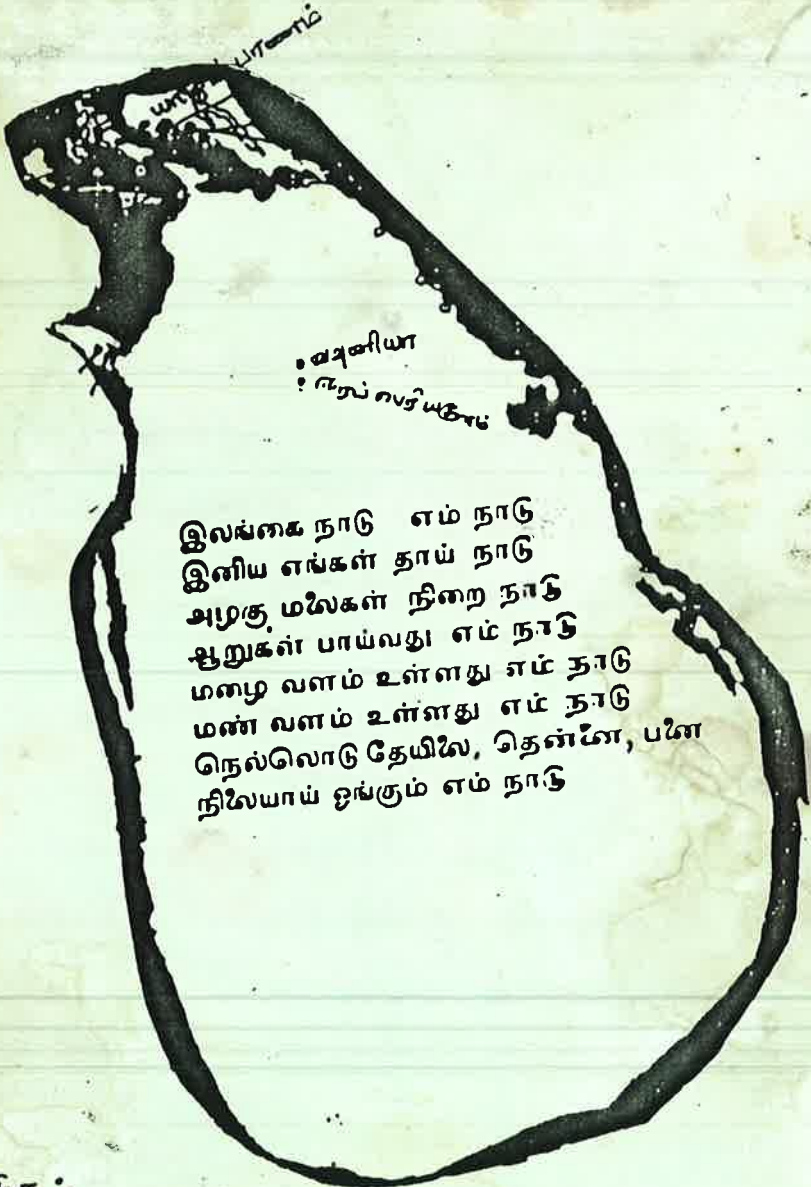 யாழ்ப்பாணம்
வவுனியா
இறம்பெரியகுளம்
இலங்கை நாடு எம் நாடு
இனிய எங்கள் தாய் நாடு
அழகு மலைகள் நிறை நாடு
ஆறுகள் பாய்வது எம் நாடு
மழை வளம் உள்ளது எம் நாடு
மண் வளம் உள்ளது எம் நாடு
நெல்லொடு தேயிலை, தென்னை, பனை
நிலையாய் ஓங்கும் எம் நாடு